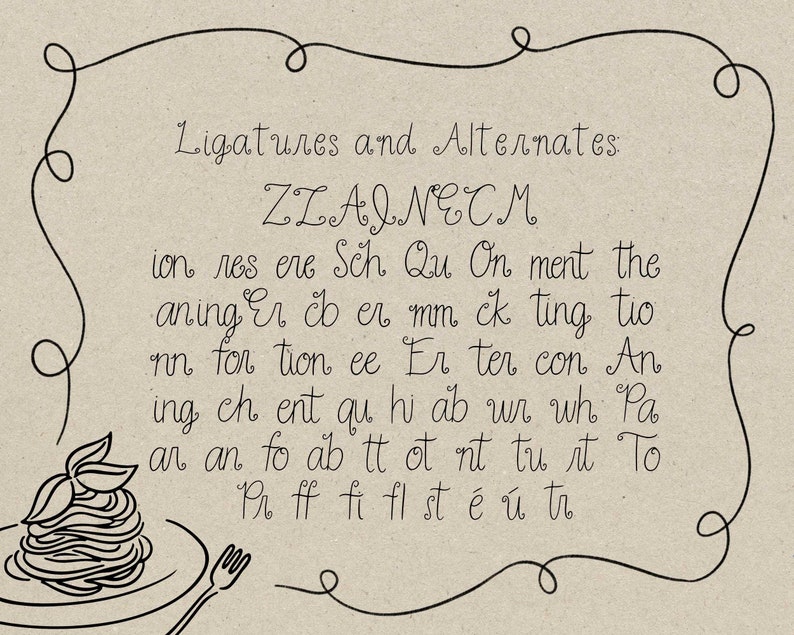 Ligatures and Alternates:
ZLAINECM
ion res ere Sch Qu On ment the
aning Er cb er mm ck ting tio
nn for tion ee Er ter con An
ing ch ent qu hi ab wr wh Pa
ar an fo ab tt ot nt tu rt To
Pr ff fi fl st é ú tr